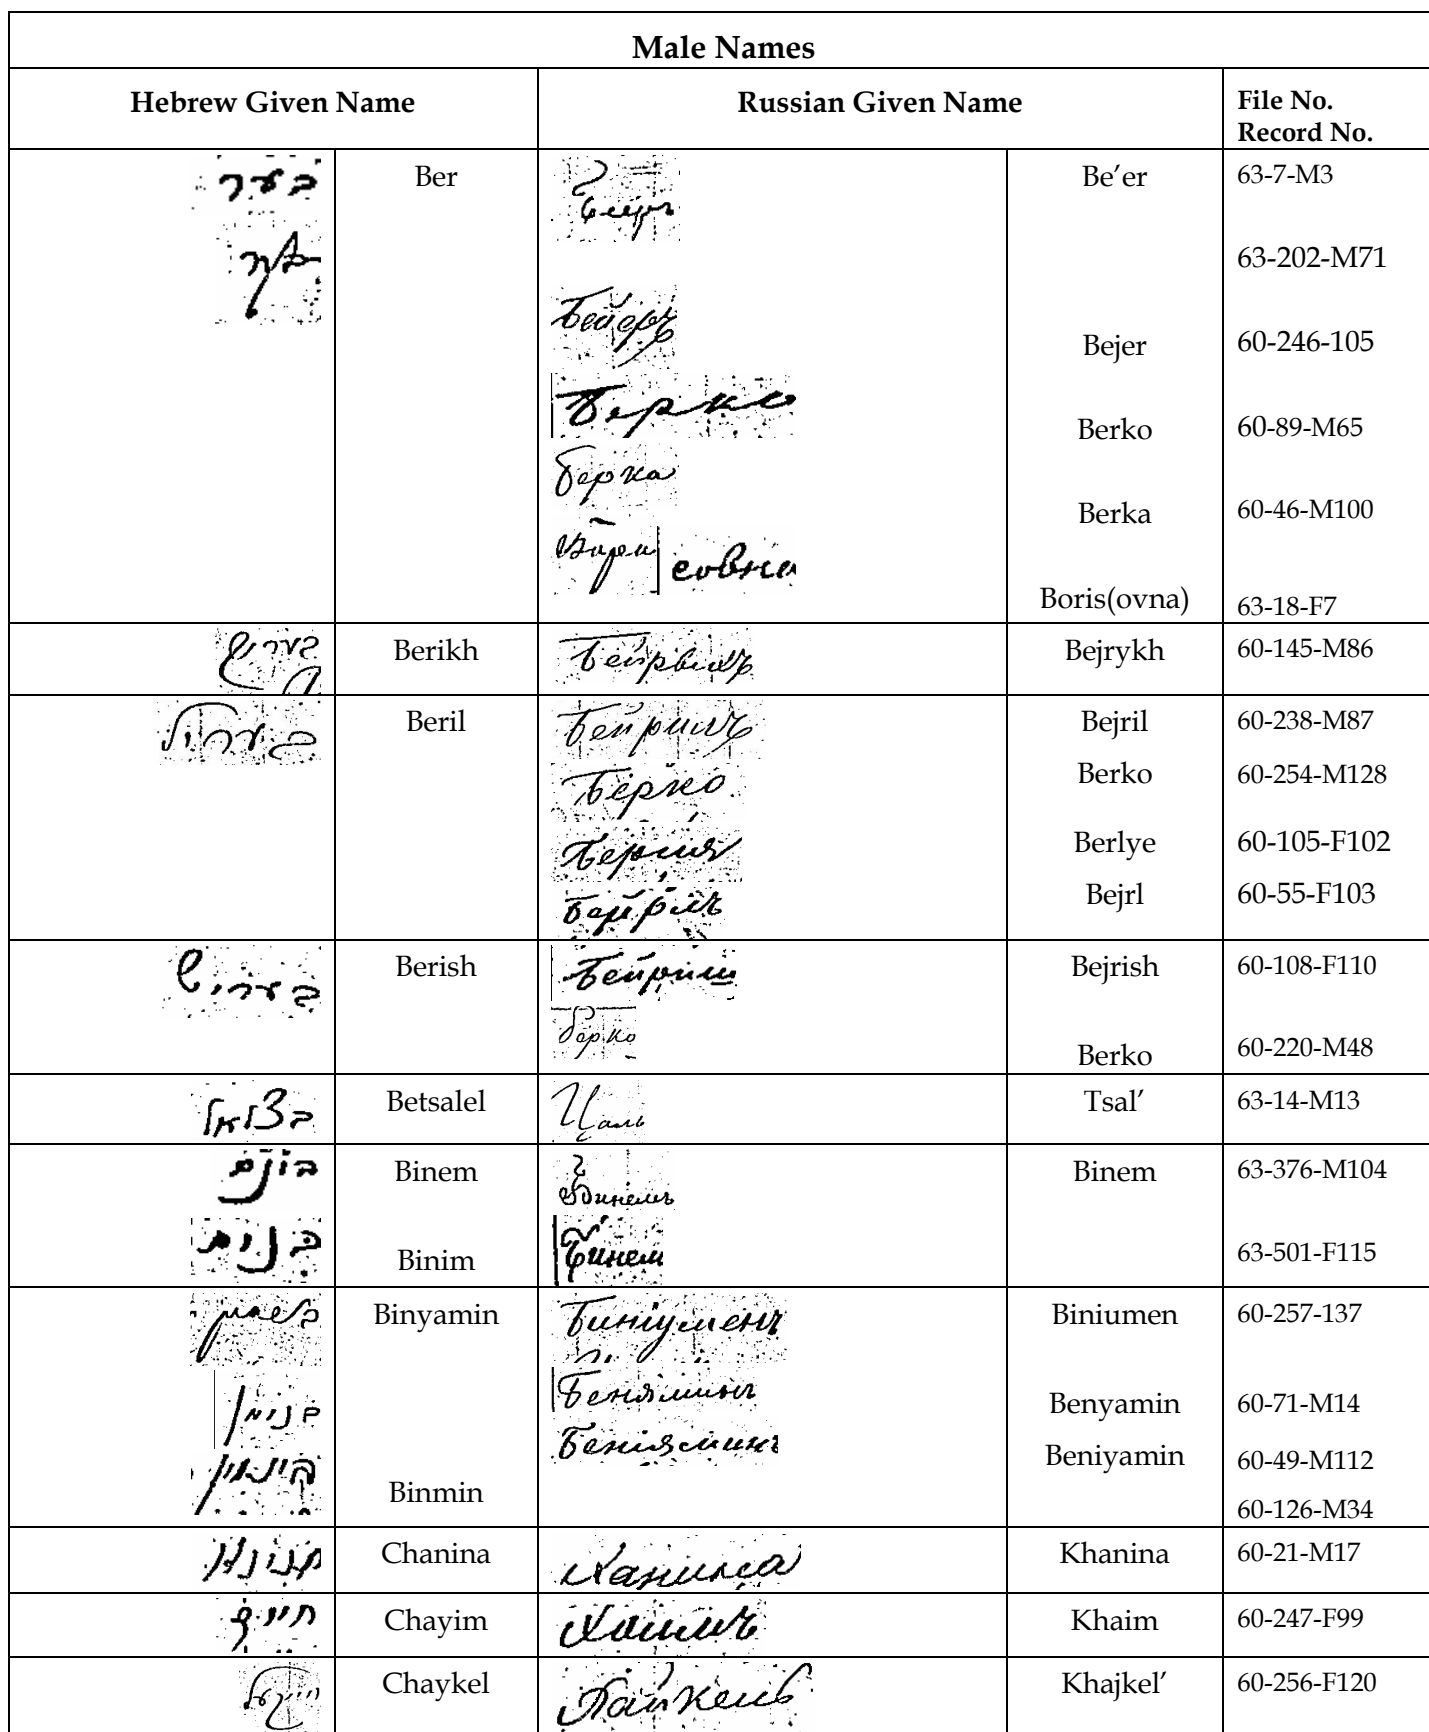 Male Names
Hebrew Given Name Russian Given Name File No.
Record No.
בער Ber Беер Be’er 63-7-M3
63-202-M71
Бейеръ Bejer 60-246-105
Берко Berko 60-89-M65
Берка Berka 60-46-M100
совна Boris(ovna) 63-18-F7
Berikh Bejrykh 60-145-M86
בעריל Beril Бейрилъ Bejril 60-238-M87
Берко Berko 60-254-M128
Berlye 60-105-F102
Бейрлъ Bejrl 60-55-F103
בעריש Berish Бейриш Bejrish 60-108-F110
Берко Berko 60-220-M48
בצלאל Betsalel Цаль Tsal’ 63-14-M13
בונם Binem Бинемъ Binem 63-376-M104
בנים Binim Бинем 63-501-F115
Binyamin Биніуменъ Biniumen 60-257-137
בנימן Беняминъ Benyamin 60-71-M14
Беніяминъ Beniyamin 60-49-M112
Binmin 60-126-M34
חנינא Chanina Ханина Khanina 60-21-M17
חיים Chayim Хаимъ Khaim 60-247-F99
Chaykel Хайкель Khajkel’ 60-256-F120